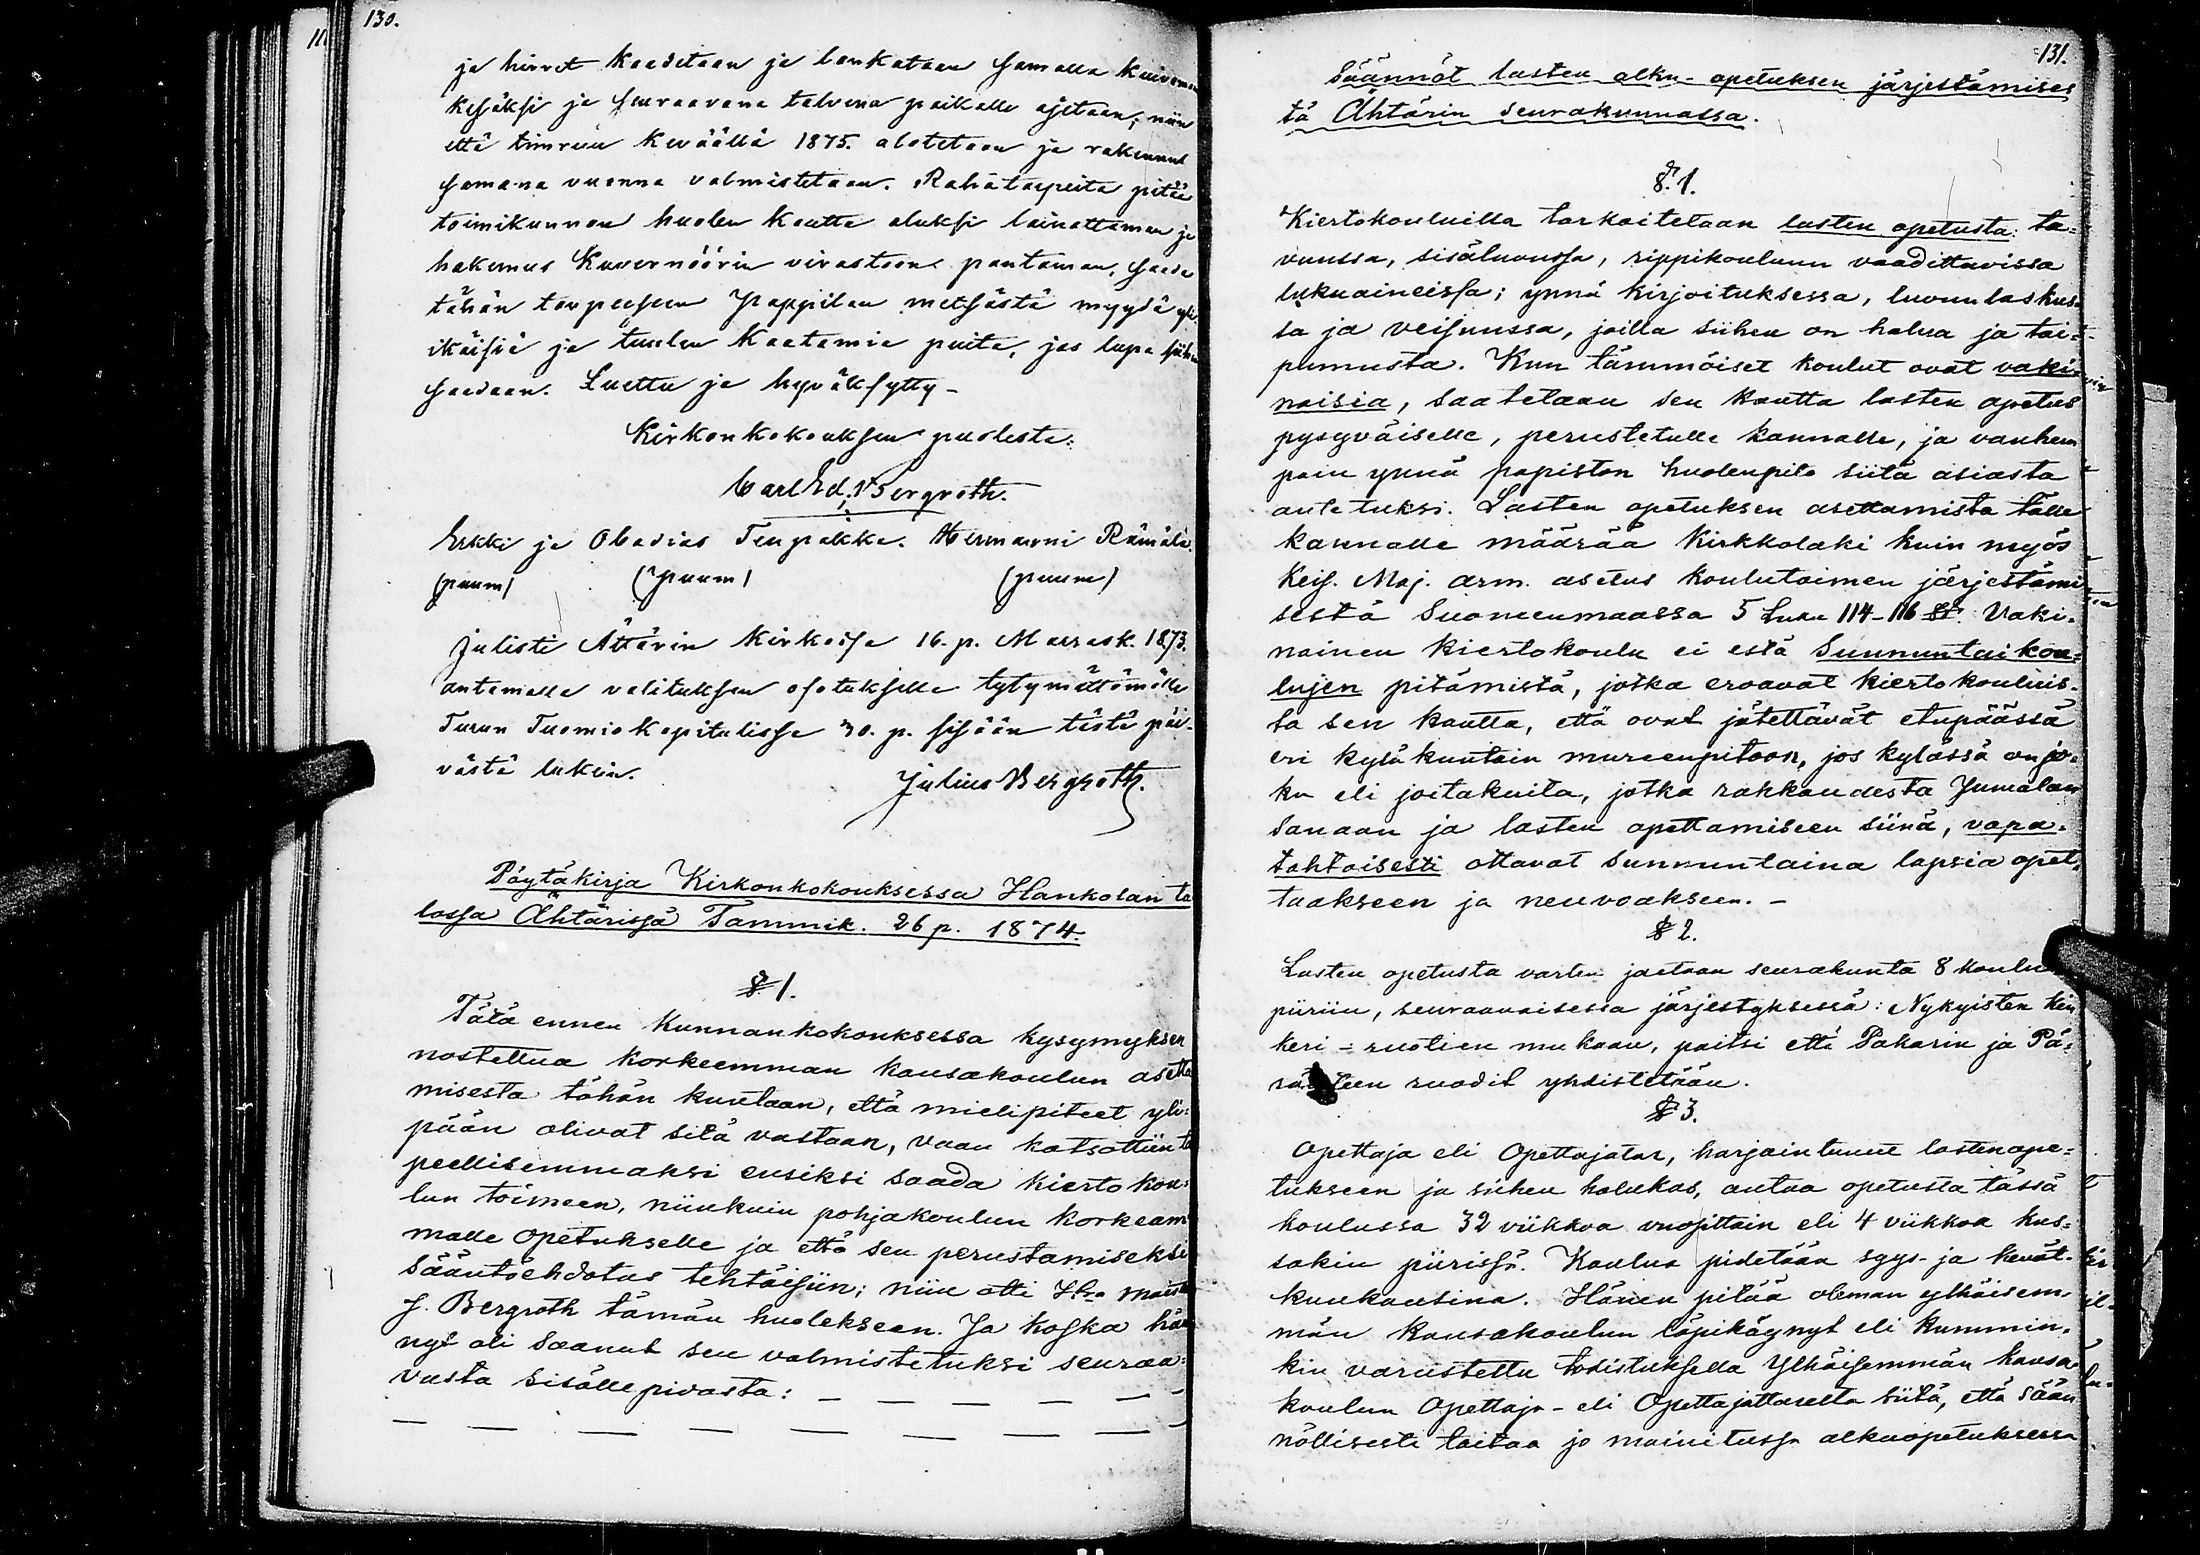 130.
ja hirret kaadetaan ja lankataan samalla
kesäksi ja seuraavana talvena paikalle ajetaan, niin
että timruu keväällä 1875. alotetaan ja rakennus
samana vuonna valmistetaan. Rahatarpeita pitää
toimikunnan huolen kautta aluksi lainattaman ja
hakemus Kuvernöörin virastoon pantaman, saada
tähän tarpeeseen Pappilan metsästä myydä yli
ikäisiä ja tuulen kaatamia puita, jos lupa siihen
saadaan. Luettu ja hyväksytty –
Kirkonkokouksen puolesta:
Carl Ed. Bergroth.
Erkki ja Obadias Teupakka. Hermanni Rämälä.
(puum) (puum) (puum)
Julisti Ättärin kirkossa 16. p. Marrask. 1873.
antamalla valituksen osotukselle tytymättömälle
Turun Tuomiokapitulissa 30. p. sisään tästä päi-
västä lukein. Julius Bergroth.
Pöytäkirja Kirkonkokouksessa Hankolan ta
lossa Ähtärissä Tammik. 26 p. 1874.
§ 1.
Tätä ennen Kunnankokouksessa kysymyksen
nostettua korkeemman kansakoulun asetta
misesta tähän kuntaan, että mielipiteet yli=
pään olivat sitä vastaan, vaan katsottiin ta
peellisemmaksi ensiksi saada kiertokou=
lun toimeen, niinkuin pohjakoulun korkeam
malle opetukselle ja että sen perustamiseksi
sääntöehdotus tehtäisiin; niin otti Hra
J. Bergroth tämän huolekseen. Ja koska hän
nyt oli saanut sen valmistetuksi seuraa=
vasta sisällepidosta: – – – – –
– – – – – – – – –
131.
Säännöt lasten alku-opetuksen järjestämises
tä Ähtärin seurakunnassa.
§. 1.
Kiertokouluilla tarkoitetaan lasten opetusta: ta=
vuussa, sisäluvussa, rippikouluun vaadittavissa
lukuaineissa; ynnä kirjoituksessa, luvunlaskus
sa ja veisuussa, joilla siihen on halua ja tai=
pumusta. Kun tämmöiset koulut ovat vaki=
naisia, saatetaan sen kautta lasten opetus
pysyväiselle, perustetulle kannalle, ja vanhem
pain ynnä papiston huolenpito siitä asiasta
autetuksi. Lasten opetuksen asettamista tälle
kannalle määrää Kirkkolaki kuin myös
Keis. Maj. arm. asetus koulutoimen järjestämi
sestä Suomenmaassa 5 Luku 114-116 §§. Vaki-
nainen kiertokoulu ei estä Sunnuntaikou=
lujen pitämistä, jotka eroavat kiertokouluis-
ta sen kautta, että ovat jätettävät etupäässä
eri kyläkuntain mureenpitoon, jos kylässä on jo=
ku eli joitakuita, jotka rakkaudesta Jumalan
sanaan ja lasten opettamiseen siinä, vapa=
tahtoisesti ottavat sunnuntaina lapsia opet=
taakseen ja neuvoakseen. –
§ 2.
Lasten opetusta varten jaetaan seurakunta 8 koulu
piiriin, seuraavaisessa järjestyksessä: Nykyisten kin
keri-ruotien mukaan, paitsi että Pakarin ja
ruodit yhdistetään.
§ 3.
Opettaja eli Opettajatar, harjaintunut lastenope=
tukseen ja siihen halukas, antaa opetusta tässä
koulussa 32 viikkoa vuosittain eli 4 viikkoa kus=
sakin piirissä. Koulua pidetään syys- ja kevät-
kuukausina. Hänen pitää oleman ylhäisem-
män kansakoulun läpikäynyt eli kummin-
kin varustettu todistuksella Ylhäisemmän kansa
koulun Opettaja- eli Opettajattarelta siitä, että sään
nöllisesti taitaa jo mainitussa alkuopetuksessa